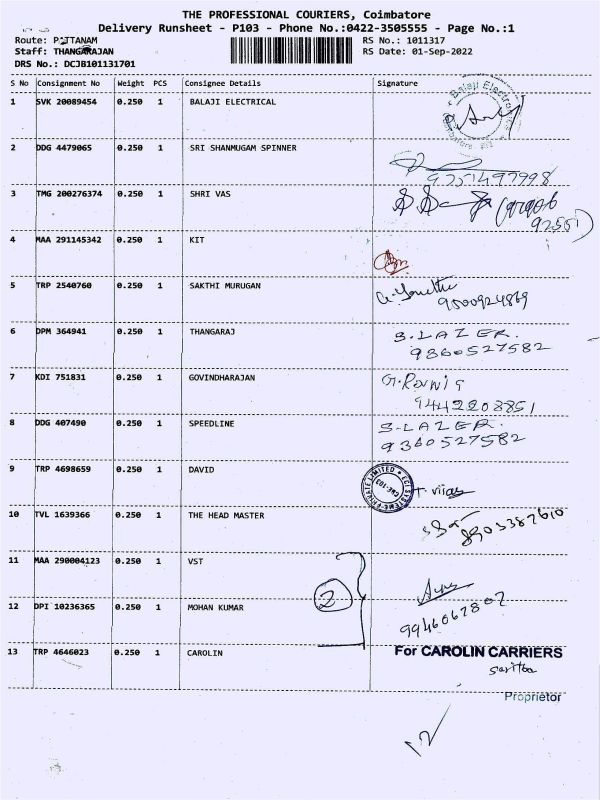 THE PROFESSIONAL COURIERS, Coimbatore
Delivery Runsheet - P103 - Phone No.:0422-3505555 - Page No.:1
Route: PATTANAM RS No.: 1011317
Staff: THANGARAJAN RS Date: 01-Sep-2022
DRS No.: DCJB101131701
S No Consignment No Weight PCS Consignee Details Signature
1 SVK 20089454 0.250 1 BALAJI ELECTRICAL
Balaji Electro
2 DDG 4479065 0.250 1 SRI SHANMUGAM SPINNER
9751497998
3 TMG 200276374 0.250 1 SHRI VAS
92551
4 MAA 291145342 0.250 1 KIT
5 TRP 2540760 0.250 1 SAKTHI MURUGAN
9500924869
6 DPM 364941 0.250 1 THANGARAJ S. LAZER.
9360527582
7 KDI 751831 0.250 1 GOVINDHARAJAN
9442208851
8 DDG 407490 0.250 1 SPEEDLINE S-LAZER.
9360527582
9 TRP 4698659 0.250 1 DAVID
PRIVATE LIMITED
10 TVL 1639366 0.250 1 THE HEAD MASTER
8903387610
11 MAA 290004123 0.250 1 VST
2
12 DPI 10236365 0.250 1 MOHAN KUMAR
9946062802
13 TRP 4646023 0.250 1 CAROLIN For CAROLIN CARRIERS
Saritha
Proprietor
12